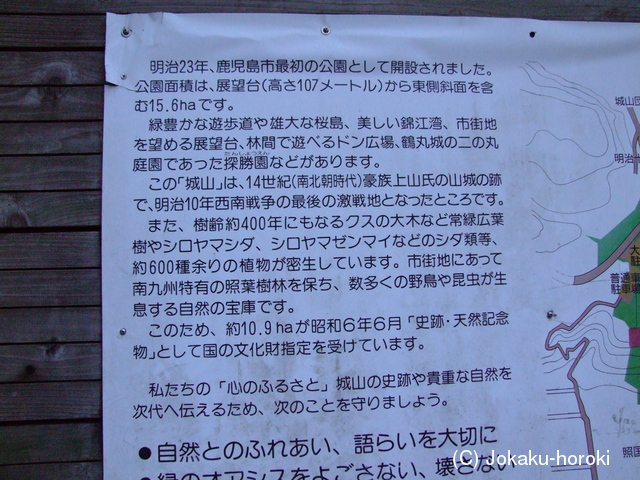 明治23年、鹿児島市最初の公園として開設されました。
公園面積は、展望台(高さ107メートル)から東側斜面を含
む15.6haです。
緑豊かな遊歩道や雄大な桜島、美しい錦江湾、市街地
を望める展望台、林間で遊べるドン広場、鶴丸城の二の丸
庭園であった探勝園などがあります。
この「城山」は、14世紀(南北朝時代)豪族上山氏の山城の跡
で、明治10年西南戦争の最後の激戦地となったところです。
また、樹齢約400年にもなるクスの大木など常緑広葉
樹やシロヤマシダ、シロヤマゼンマイなどのシダ類等、
約600種余りの植物が密生しています。市街地にあって
南九州特有の照葉樹林を保ち、数多くの野鳥や昆虫が生
息する自然の宝庫です。
このため、約10.9haが昭和6年6月「史跡・天然記念
物」として国の文化財指定を受けています。
私たちの「心のふるさと」城山の史跡や貴重な自然を
次代へ伝えるため、次のことを守りましょう。
●自然とのふれあい、語らいを大切に
●緑のオアシスをよごさない、壊さない
城山
明治
普通
駐車
照国
(C) Jokaku-horoki